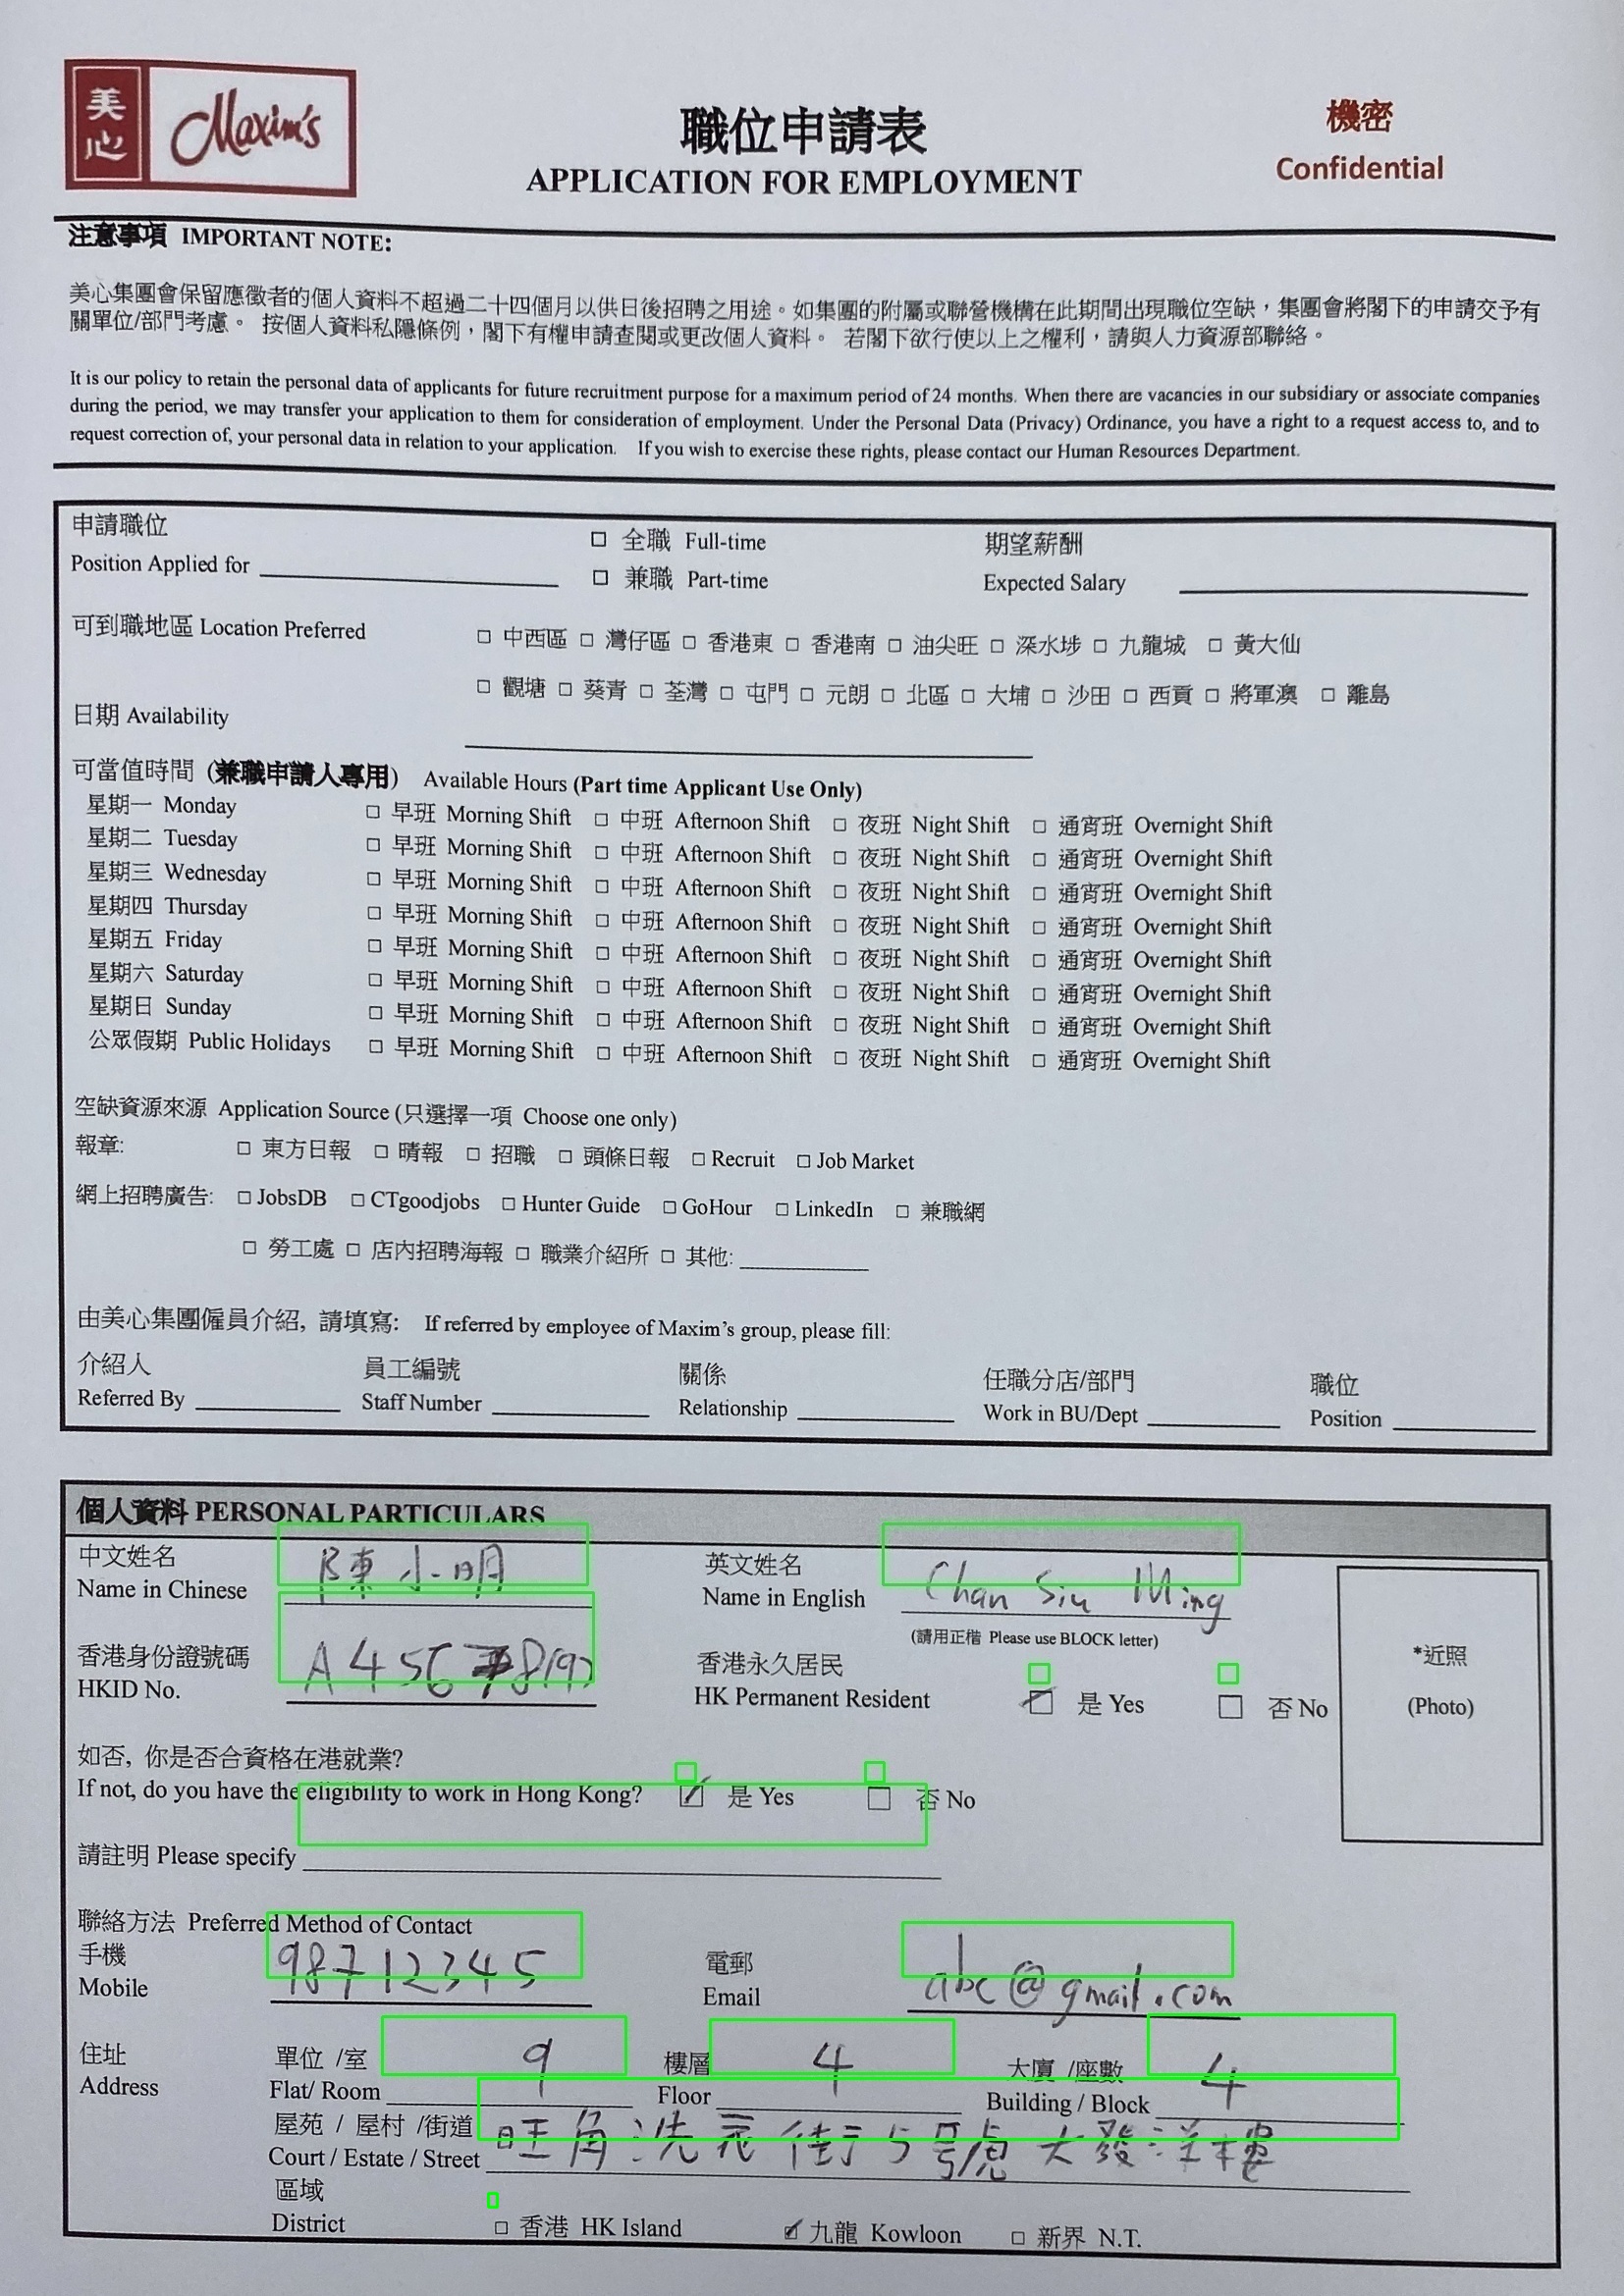 美心 Maxim's
職位申請表
機密
APPLICATION FOR EMPLOYMENT
Confidential
注意事項 IMPORTANT NOTE:
美心集團會保留應徵者的個人資料不超過二十四個月以供日後招聘之用途。如集團的附屬或聯營機構在此期間出現職位空缺，集團會將閣下的申請交予有
關單位/部門考慮。 按個人資料私隱條例，閣下有權申請查閱或更改個人資料。 若閣下欲行使以上之權利，請與人力資源部聯絡。
It is our policy to retain the personal data of applicants for future recruitment purpose for a maximum period of 24 months. When there are vacancies in our subsidiary or associate companies
during the period, we may transfer your application to them for consideration of employment. Under the Personal Data (Privacy) Ordinance, you have a right to a request access to, and to
request correction of, your personal data in relation to your application. If you wish to exercise these rights, please contact our Human Resources Department.
申請職位 □ 全職 Full-time 期望薪酬
Position Applied for □ 兼職 Part-time Expected Salary
可到職地區 Location Preferred □ 中西區 □ 灣仔區 □ 香港東 □ 香港南 □ 油尖旺 □ 深水埗 □ 九龍城 □ 黃大仙
□ 觀塘 □ 葵青 □ 荃灣 □ 屯門 □ 元朗 □ 北區 □ 大埔 □ 沙田 □ 西貢 □ 將軍澳 □ 離島
日期 Availability
可當值時間 (兼職申請人專用) Available Hours (Part time Applicant Use Only)
星期一 Monday □ 早班 Morning Shift □ 中班 Afternoon Shift □ 夜班 Night Shift □ 通宵班 Overnight Shift
星期二 Tuesday □ 早班 Morning Shift □ 中班 Afternoon Shift □ 夜班 Night Shift □ 通宵班 Overnight Shift
星期三 Wednesday □ 早班 Morning Shift □ 中班 Afternoon Shift □ 夜班 Night Shift □ 通宵班 Overnight Shift
星期四 Thursday □ 早班 Morning Shift □ 中班 Afternoon Shift □ 夜班 Night Shift □ 通宵班 Overnight Shift
星期五 Friday □ 早班 Morning Shift □ 中班 Afternoon Shift □ 夜班 Night Shift □ 通宵班 Overnight Shift
星期六 Saturday □ 早班 Morning Shift □ 中班 Afternoon Shift □ 夜班 Night Shift □ 通宵班 Overnight Shift
星期日 Sunday □ 早班 Morning Shift □ 中班 Afternoon Shift □ 夜班 Night Shift □ 通宵班 Overnight Shift
公眾假期 Public Holidays □ 早班 Morning Shift □ 中班 Afternoon Shift □ 夜班 Night Shift □ 通宵班 Overnight Shift
空缺資源來源 Application Source (只選擇一項 Choose one only)
報章: □ 東方日報 □ 晴報 □ 招職 □ 頭條日報 □ Recruit □ Job Market
網上招聘廣告: □ JobsDB □ CTgoodjobs □ Hunter Guide □ GoHour □ LinkedIn □ 兼職網
□ 勞工處 □ 店內招聘海報 □ 職業介紹所 □ 其他:
由美心集團僱員介紹, 請填寫: If referred by employee of Maxim's group, please fill:
介紹人 員工編號 關係 任職分店/部門 職位
Referred By Staff Number Relationship Work in BU/Dept Position
個人資料 PERSONAL PARTICULARS
中文姓名 陳小明 英文姓名
Name in Chinese Name in English Chan Siu Ming
(請用正楷 Please use BLOCK letter)
香港身份證號碼 香港永久居民 *近照
HKID No. A45678(9) HK Permanent Resident ☑ 是 Yes □ 否 No (Photo)
如否, 你是否合資格在港就業?
If not, do you have the eligibility to work in Hong Kong? ☑ 是 Yes □ 否 No
請註明 Please specify
聯絡方法 Preferred Method of Contact
手機 98712345 電郵
Mobile Email abc@gmail.com
住址 單位 /室 9 樓層 4 大廈 /座數 4
Address Flat/ Room Floor Building / Block
屋苑 / 屋村 /街道 旺角洗衣街5號大發洋樓
Court / Estate / Street
區域
District □ 香港 HK Island ☑ 九龍 Kowloon □ 新界 N.T.